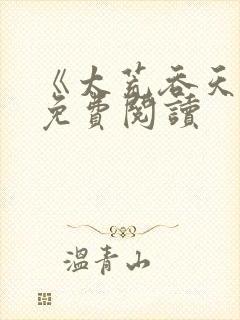 《大荒吞天
免費閱讀
溫青山